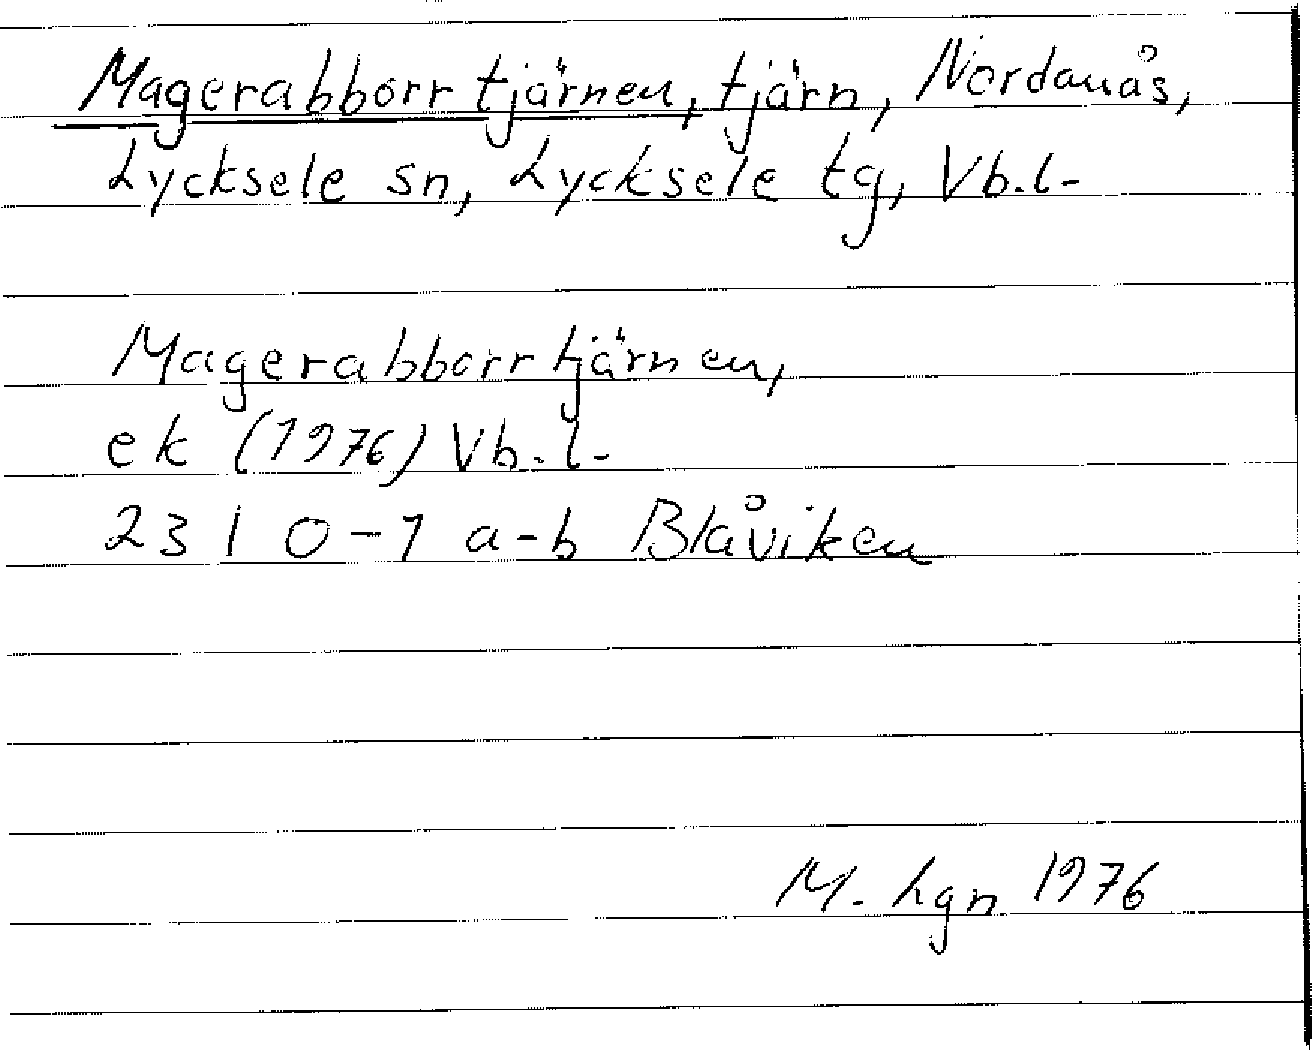 Magerabborrtjärnen, tjärn, Nordanås,
Lycksele sn, Lycksele tg, Vb.l.
Magerabborrtjärnen,
ek (1976) Vb.l.
23 I 0-1 a-b Blåviken
M. Lgn 1976